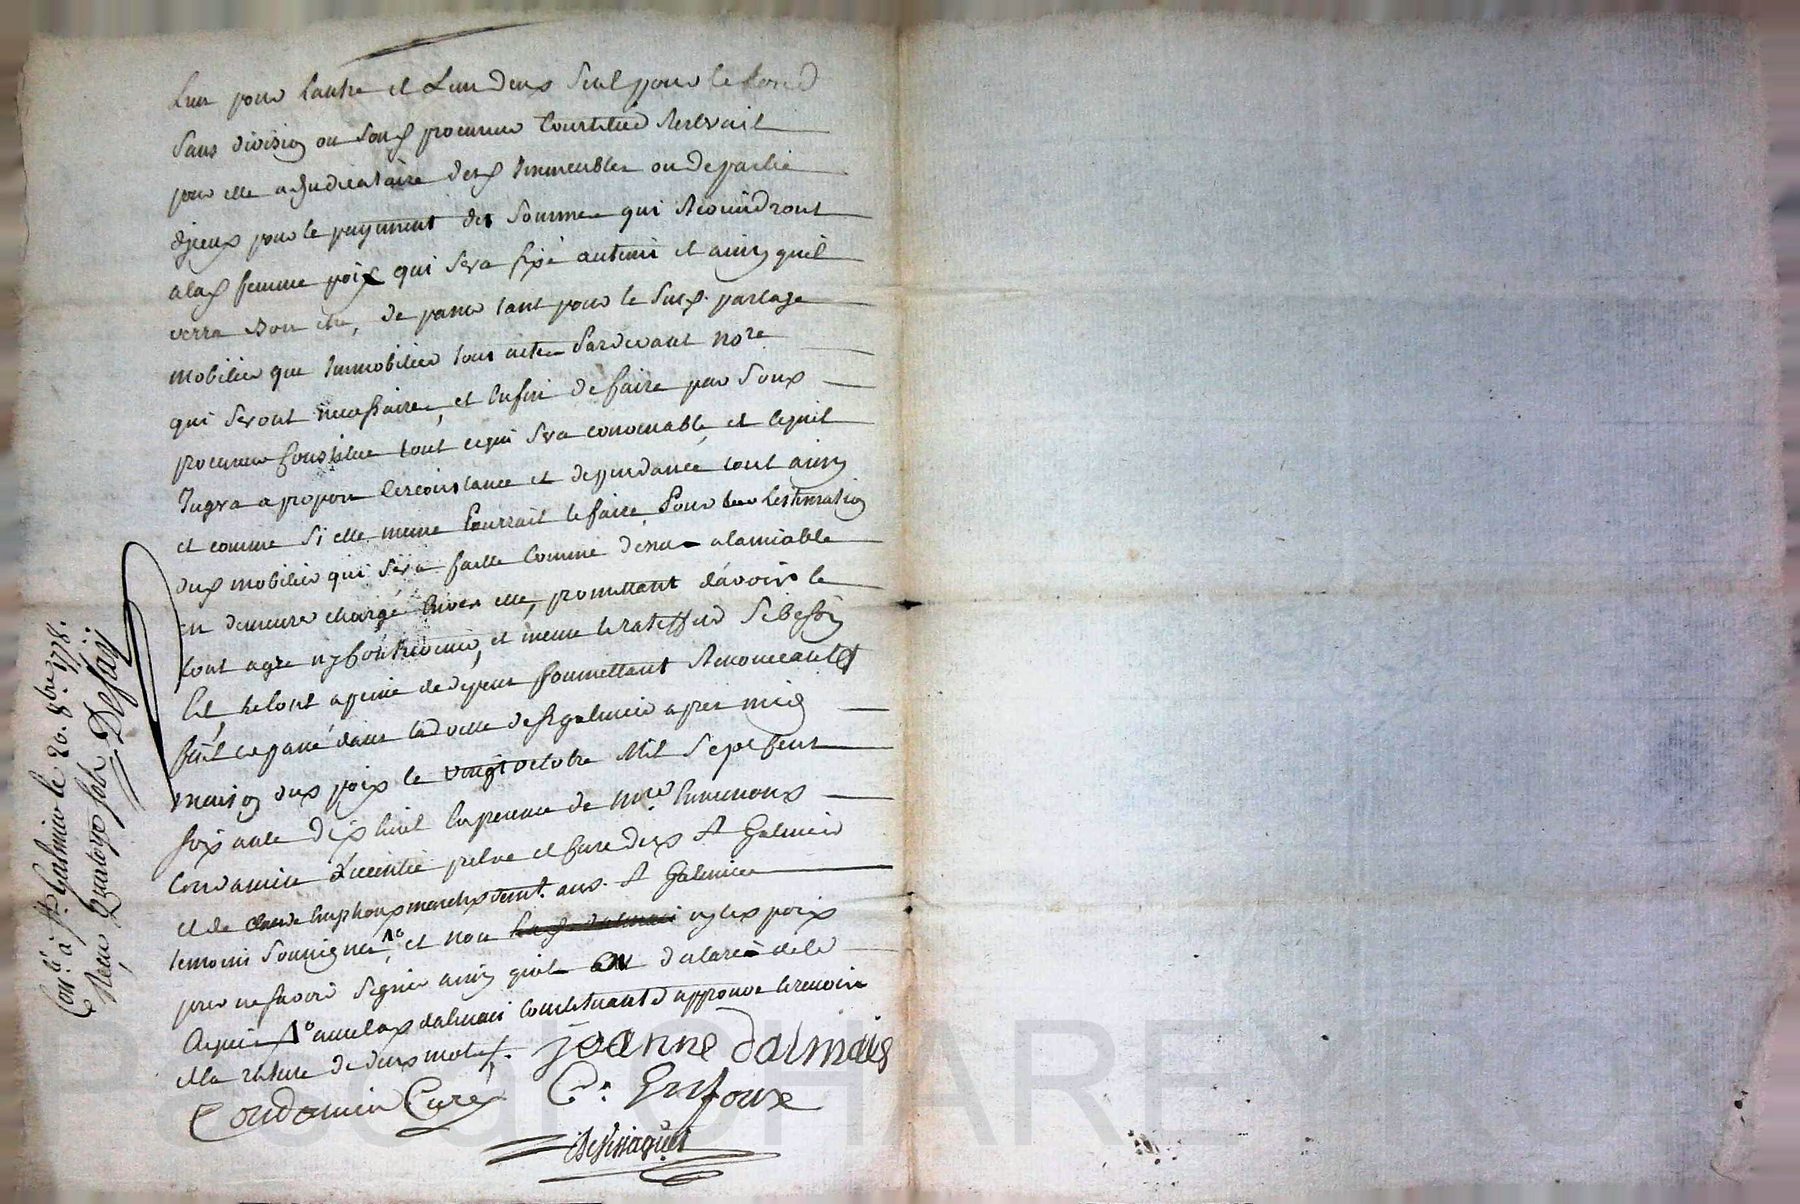 Lun pour lautre et Lun deux seul pour le tout
sans division ou sond procureur Constitué servait
pour elle adjudicataire desd immeubles ou departie
diceux pour le payement des sommes qui reviendront
alad femme poix qui sera fixé autemi et ainsy quil
verra bon etre, de passer tant pour le susd. partage
mobilier que immobilier tous actes Pardevant nore
qui seront necessaires, et Enfin de faire par Sond
procureur Constitué tout cequi sera convenable et lequil
Jugera apropos Circonstance et dependance tout ainsy
et comme Si elle meme Pourrait le faire, Pour Lestimation
dud mobilier qui sera faitte Comme dessus alamiable
en demeure chargé Envers elle, promettant davoir le
tout agre ny Contrevenir, et meme le rateffier Sibesoin
Est le tout apeine dedepens soumettant Renonceant
fait et passé dans lad ville de St galmier apres midy
maison dud poix le vingt octobre Mil Sept Cent
soixante dix huit En presence de mre Ennemond
Condamin Licentié pretre et Curé dud St Galmier
et de Claude Enphoux marchd demt. aud. St Galmier
temoins soussignes, et non lad. dalmais ny led poix
pour ne savoir Signer ainsy quil a declaré de ce
Requis avec lad dalmais Constituante approuve le renvoi
et la rature de deux mots
joanne dalmais
Condamin Curé
C. Enfoux
Desvinaques
Con.lé à St. Galmier le 20. 8bre. 1778.
Reçu Quatorze sols Desfay
Pascal CHAREYRON